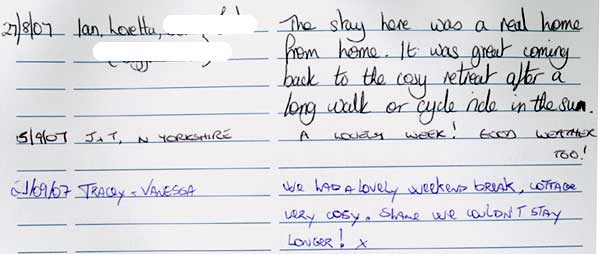 27/8/07 Ian, Loretta, The stay here was a real home
from home. It was great coming
back to the cosy retreat after a
long walk or cycle ride in the sun.
15/9/07 J+T, N YORKSHIRE A LOVELY WEEK! GOOD WEATHER
TOO!
21/09/07 TRACEY + VANESSA WE HAD A LOVELY WEEKEND BREAK, COTTAGE
VERY COSY. SHAME WE COULDN'T STAY
LONGER! X